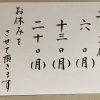 六日(月)
十三日(月)
二十日(月)
お休みを
させて頂きます